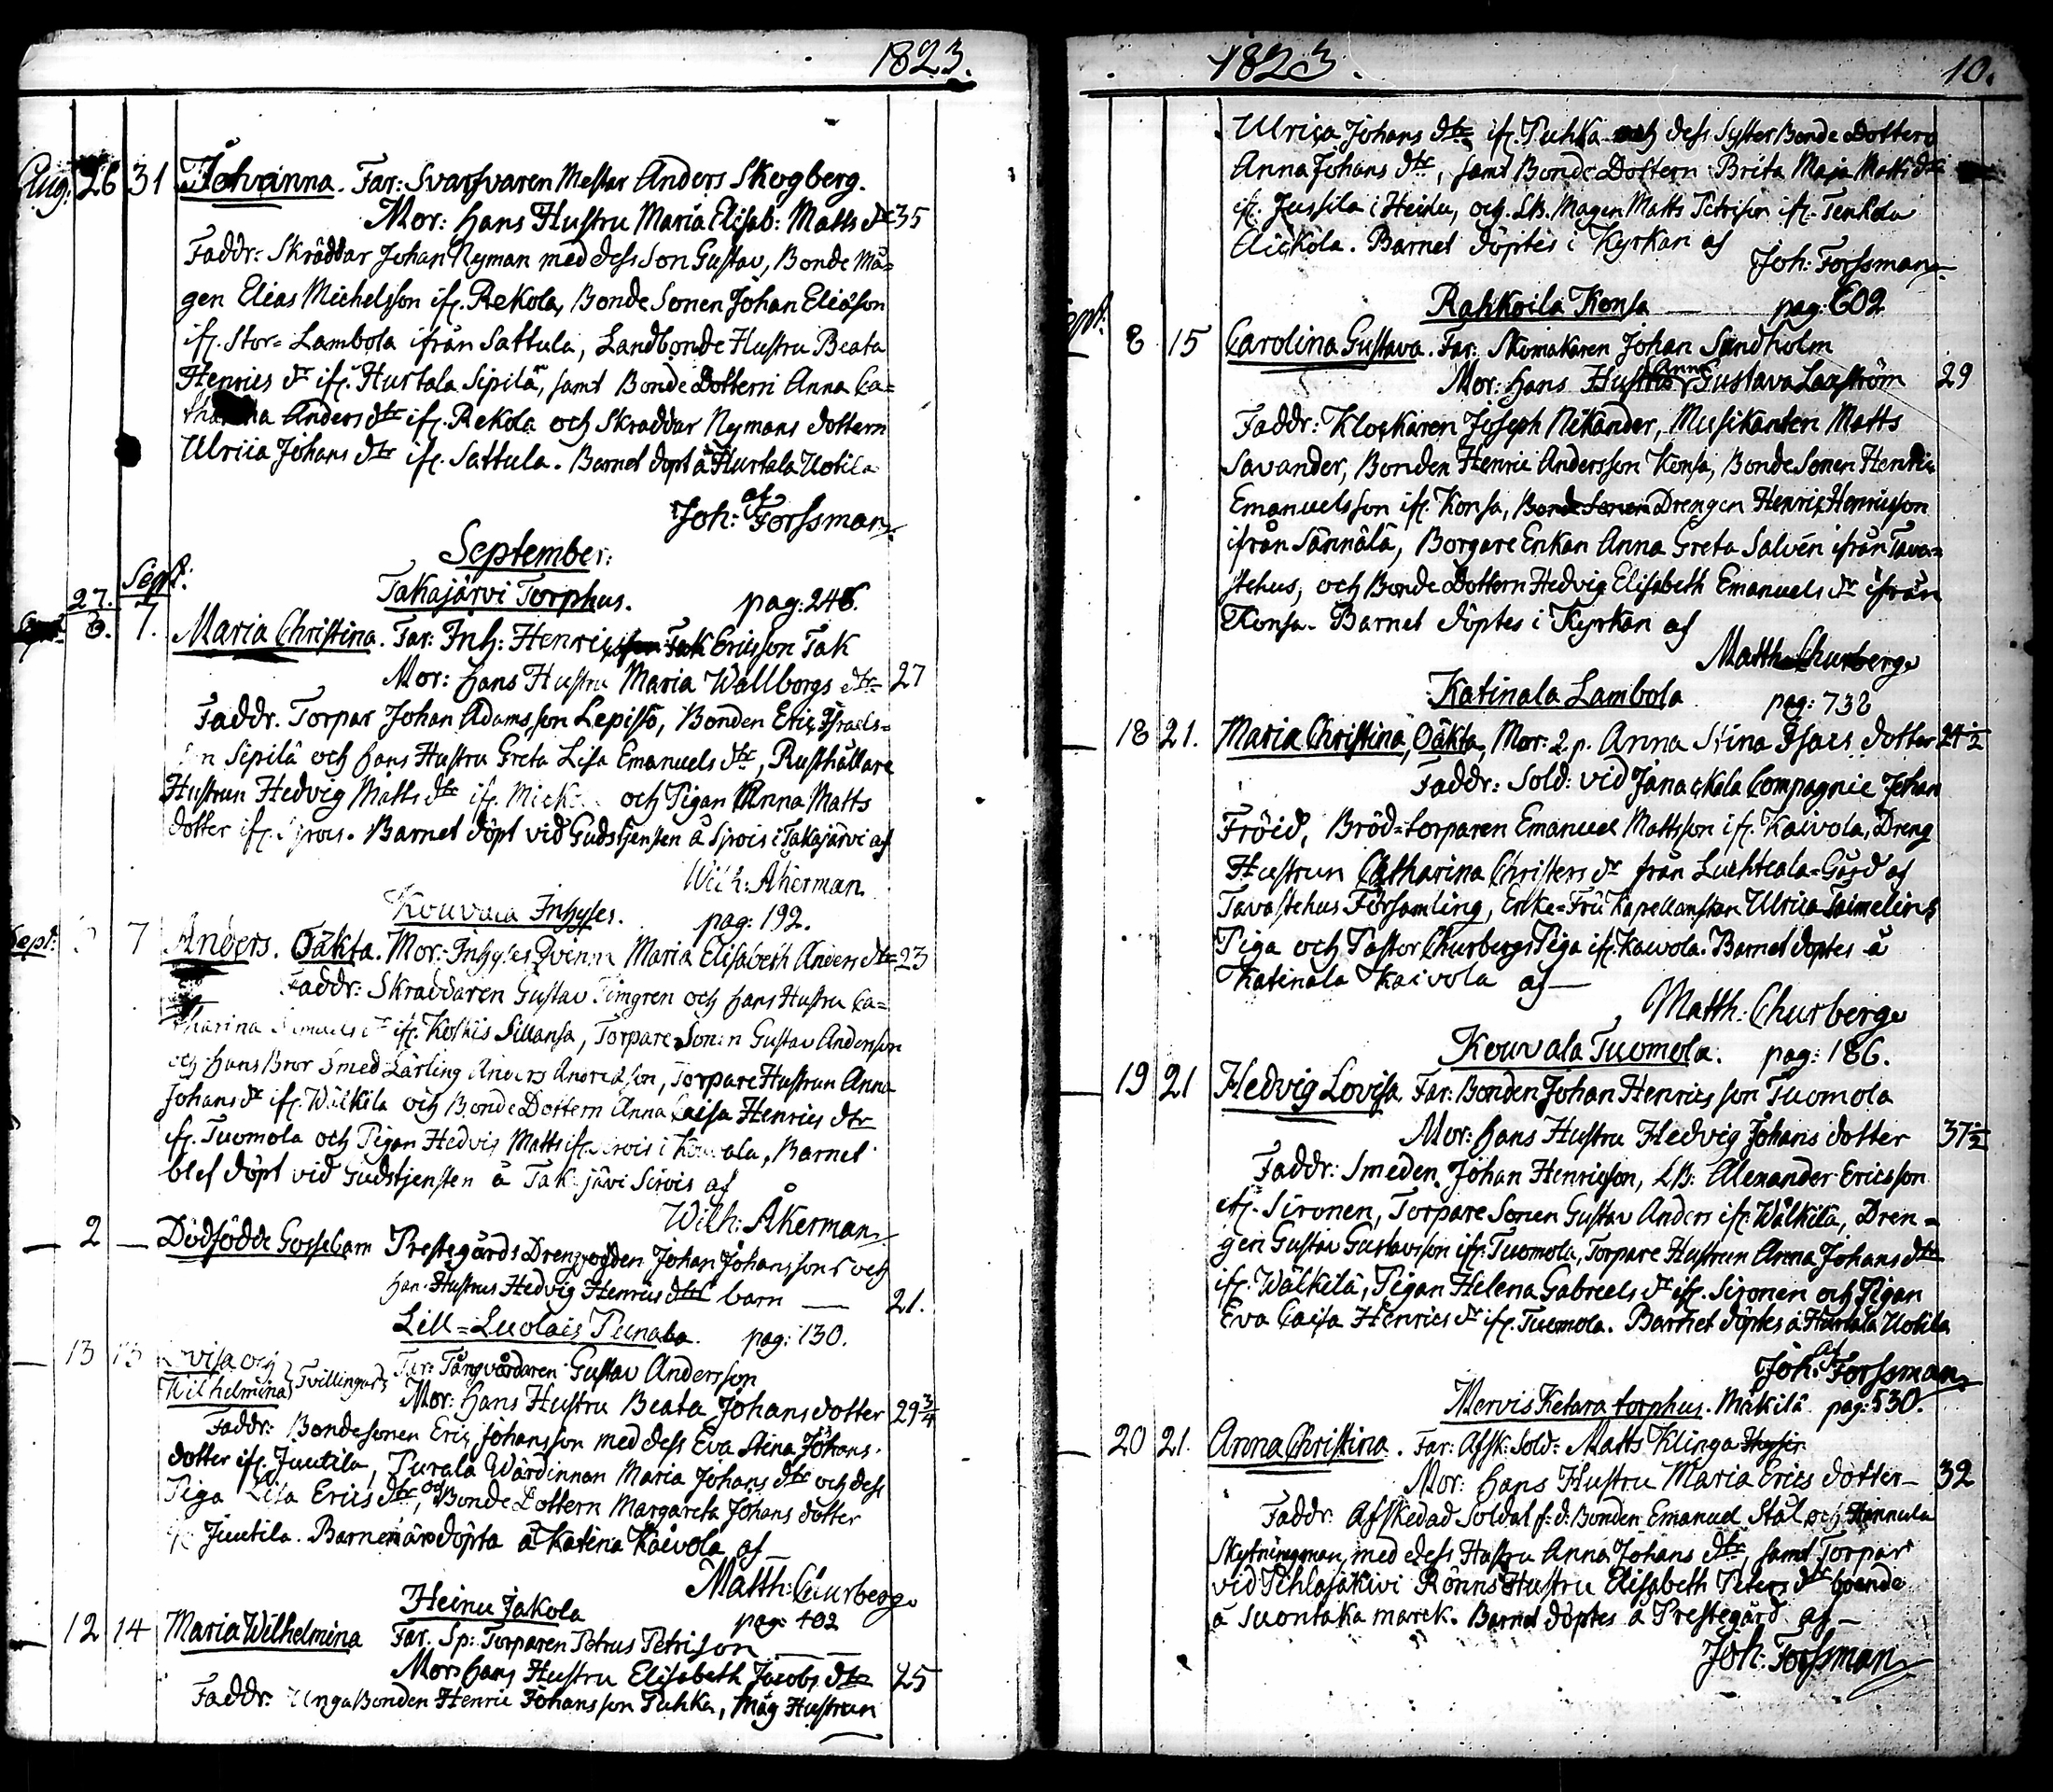 1823.
Aug: 26 31 Johanna. Far: Svarfvaren Mestar Anders Skogberg.
Mor: Hans Hustru Maria Elisab: Matts dr 35
Faddr: Skräddar Johan Nyman med dess Son Gustav, Bonde Må=
gen Elias Michelsson ifr. Rekola, Bonde Sonen Johan Eliasson
ifr. Stor=Lambola ifrån Sattula, Landbonde Hustru Beata
Henrics dr ifr. Hurtala Sipilä, samt Bonde Dottern Anna Ca=
tharina Anders dtr ifr. Rekola och Skräddar Nymans dottern
Ulrica Johans dtr ifr. Sattula. Barnet döpt å Hurtala Uotila
af
Joh: Forssman
September:
Sept:
Takajärvi Torphus. pag: 248.
27. 7. Maria Christina. Far: Inh: Henric Ericsson Tak
Mor: Hans Hustru Maria Wallborgs dtr 27
Faddr. Torpar Johan Adamsson Lepistö, Bonden Eric Israels=
son Sipilä och hans Hustru Greta Lisa Emanuels dtr, Rusthållare
Hustrun Hedvig Matts dtr ifr. och Pigan Anna Matts
dotter ifr. Barnet döpt vid Gudstjensten å Sirois i Takajärvi af
Wilh: Åkerman
Kouvala Inhyses. pag: 192.
Sept: 7 Anders. Oäkta. Mor: Inhyses Qvinnan Maria Elisabeth Anders dtr 23
Faddr: Skraddaren Gustav Timgren och hans Hustru Ca=
tharina Samuels dr ifr. Koskis Sillansa, Torpare Sonen Gustav Andersson
och hans Bror Smed Lärling Anders Andersson, Torpare Hustrun Anna
Johans dr ifr. Wälkilä och Bonde Dottern Anna Caisa Henrics dtr
ifr. Tuomola och Pigan Hedvig Matts ifr. Sirois i Kouvala, Barnet
blef döpt vid Gudstjensten å Takajärvi Sirois af
Wilh: Åkerman
2 — Dödfödde Gossebarn Prestegårds Drengen Johan Johansson och
Hans Hustrus Hedvig Henrics dtrs barn — 21.
Lill=Luolais Punala. pag: 130.
13 13 Lovisa och Wilhelmina Tvillingar Far: Fångvårdaren Gustav Andersson
Mor: Hans Hustru Beata Johans dotter 29 3/4
Faddr: Bondesonen Eric Johansson med dess Eva Stina Johans
dotter ifr. Juutila, Punala Wärdinnan Maria Johans dtr och dess
Piga Lisa Erics dtr och Bonde Dottern Margareta Johans dotter
ifr. Juutila. Barnen äro döpta å Katina Kaivola af
Matth: Churberg
Heinu Jakola pag: 402
12 14 Maria Wilhelmina Far. Sp: Torparen Petrus Petrison
Mor: Hans Hustru Elisabeth Jacobs dtr 25
Faddr: Unga Bonden Henric Johansson Puhka, Måg Hustrun
1823. 10.
Ulrica Johans dtr ifr. Puhka och dess Syster Bonde Dottern
Anna Johans dtr, samt Bonde Dottern Brita Maja Matts dtr
ifr. Jussila i Heinu, och LB. Magen Matts Petrison ifr. Tenkola
Äickölä. Barnet döptes i Kyrkan af
Joh: Forssman
Rahkoila Konsa — pag: 602
Sept: 8 15 Carolina Gustava. Far: Skomakaren Johan Sundholm
Mor: Hans Hustru Anna Gustava Laxström 29
Faddr: Klockaren Joseph Nikander, Musikanten Matts
Savander, Bonden Henric Andersson Konsa, Bonde Sonen Henric
Emanuelsson ifr. Konsa, Bonde Sonen Drengen Henric Henricsson
ifrån Sännälä, Borgare Enkan Anna Greta Salvén ifrån Tava=
stehus, och Bonde Dottern Hedvig Elisabeth Emanuels dr ifrån
Konsa. Barnet döptes i Kyrkan af
Matth: Churberg
Katinala Lambola pag: 732
18 21. Maria Christina, Oäkta, Mor: 2. p. Anna Stina Isacs dotter 24 1/2
Faddr: Sold: vid Janackala Compagnie Johan
Fröid, Bröd=torparen Emanuel Mattsson ifr. Kaivola, Dreng
Hustrun Catharina Christers dr från Luhtiala=Gård af
Tavastehus Församling, Enke=Fru Kapellanskan Ulrica Taimelins
Piga och Pastor Churbergs Piga ifr. Kaivola. Barnet döptes å
Katinala Kaivola af —
Matth: Churberg
Kouvala Tuomola. pag: 186.
19 21 Hedvig Lovisa. Far: Bonden Johan Henricsson Tuomola
Mor: Hans Hustru Hedvig Johans dotter 37 1/2
Faddr: Smeden Johan Henricsson, LB: Alexander Ericsson
ifr. Sironen, Torpare Sonen Gustav Anders ifr. Wälkilä, Dren=
gen Gustav Gustavsson ifr. Tuomola, Torpare Hustrun Anna Johans dtr
ifr. Wälkilä, Pigan Helena Gabriels dr ifr. Sironen och Pigan
Eva Caisa Henrics dr ifr. Tuomola. Barnet döptes å Hurtala Uotila
af
Joh: Forssman
Mervis Ketara torphus. Mäkilä pag: 530.
20 21. Anna Christina. Far: Afsk: Sold: Matts Klinga
Mor: Hans Hustru Maria Erics dotter — 32
Faddr: Afskedad Soldat f: d: Bonden Emanuel Stål och Hannula
med dess Hustru Anna Johans dtr, samt Torpar
vid Pihlajakivi Rönns Hustru Elisabeth Peters dtr boende
å Suontaka marck. Barnet döptes å Prestegård af —
Joh: Forssman